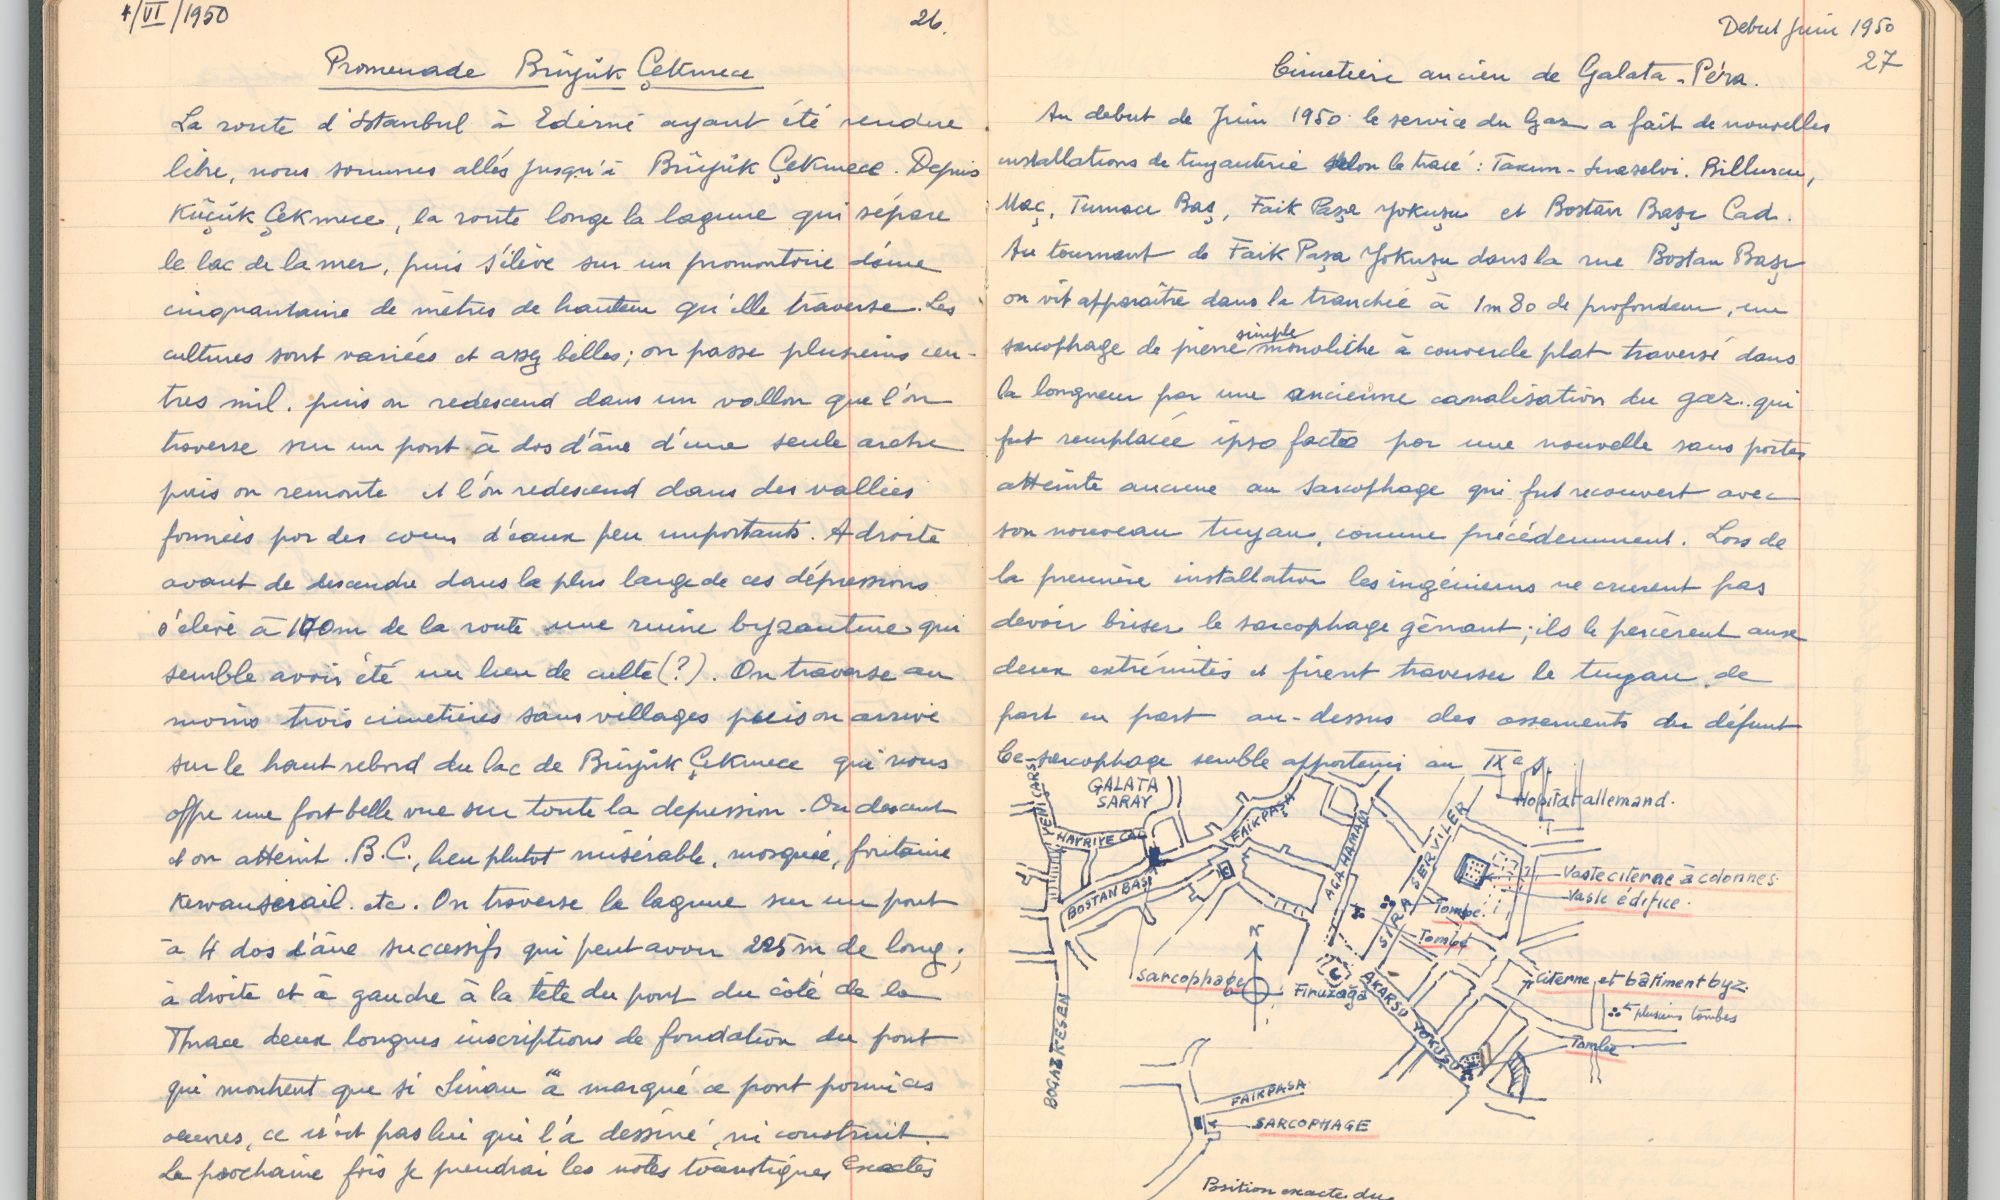 4/VI/1950
26.
Promenade Büyük Çekmece
La route d'Istanbul à Edirné ayant été rendue
libre, nous sommes allés jusqu'à Büyük Çekmece. Depuis
Küçük Çekmece, la route longe la lagune qui sépare
le lac de la mer, puis s'élève sur un promontoire d'une
cinquantaine de mètres de hauteur qu'elle traverse. Les
cultures sont variées et assez belles; on passe plusieurs cen-
tres mil. puis on redescend dans un vallon que l'on
traverse sur un pont à dos d'âne d'une seule arche
puis on remonte et l'on redescend dans des vallées
formées par des cours d'eaux peu importants. A droite
avant de descendre dans la plus large de ces dépressions
s'élève à 100m de la route une ruine byzantine qui
semble avoir été un lieu de culte (?). On traverse au
moins trois cimetières sans villages puis on arrive
sur le haut rebord du lac de Büyük Çekmece qui nous
offre une fort belle vue sur toute la depression. On descend
et on atteint B.C., lieu plutot misérable, mosquée, fontaine
Kervanserail. etc. On traverse la lagune sur un pont
à 4 dos d'âne successifs qui peut avoir 225m de long;
à droite et à gauche à la tête du pont du côté de la
Thrace deux longues inscriptions de fondation du pont
qui montrent que si Sinan a marqué ce pont parmi ces
œuvres, ce n'est pas lui qui l'a dessiné, ni construit.
La prochaine fois je prendrai les notes touristiques exactes
Debut Juin 1950
27
Cimetière ancien de Galata-Péra.
Au debut de Juin 1950 le service du Gaz a fait de nouvelles
installations de tuyauterie selon le tracé: Taxim-Siraselvi. Billurcu,
Maç, Turnacı Baş, Faik Paşa Yokuşu et Bostan Başı Cad.
Au tournant de Faik Paşa Yokuşu dans la rue Bostan Başı
on vit apparaître dans la tranchée à 1m80 de profondeur, un
sarcophage de pierre simple monolithe à couvercle plat traversé dans
la longueur par une ancienne canalisation du gaz qui
fut remplacée ipso facto par une nouvelle sans porter
atteinte aucune au sarcophage qui fut recouvert avec
son nouveau tuyau, comme précédemment. Lors de
la première installation les ingénieurs ne crurent pas
devoir briser le sarcophage gênant; ils le percèrent aux
deux extrémités et firent traverser le tuyau de
part en part au-dessus des ossements du défunt
Ce sarcophage semble appartenir au IXe s.
YENI ÇARSI
GALATA
SARAY
HAYRIYE CAD
FAIKPAŞA
BOSTAN BAŞI
AGA HAMAM
SIRA SERVILER
Hôpital allemand.
Vaste citerne à colonnes
Vaste édifice.
Tombe.
Tombe
Sarcophage
N
Firuzağa
AKARSU YOKUŞU
Citerne et bâtiment byz
plusieurs tombes
Tombe
BOGAZKESEN
FAIKPASA
SARCOPHAGE
Position exacte du